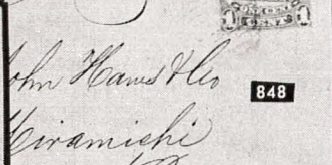 John Haws & Co
848
Miramichi